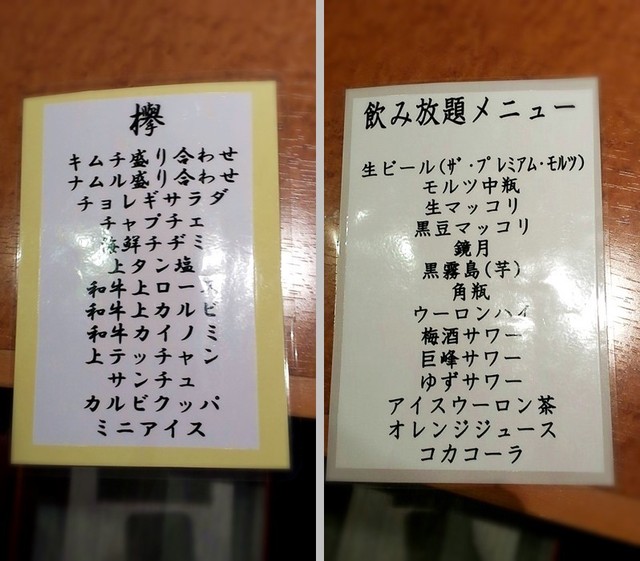 欅
キムチ盛り合わせ
ナムル盛り合わせ
チョレギサラダ
チャプチェ
海鮮チヂミ
上タン塩
和牛上ロース
和牛上カルビ
和牛カイノミ
上テッチャン
サンチュ
カルビクッパ
ミニアイス
飲み放題メニュー
生ビール(ザ・プレミアム・モルツ)
モルツ中瓶
生マッコリ
黒豆マッコリ
鏡月
黒霧島(芋)
角瓶
ウーロンハイ
梅酒サワー
巨峰サワー
ゆずサワー
アイスウーロン茶
オレンジジュース
コカコーラ